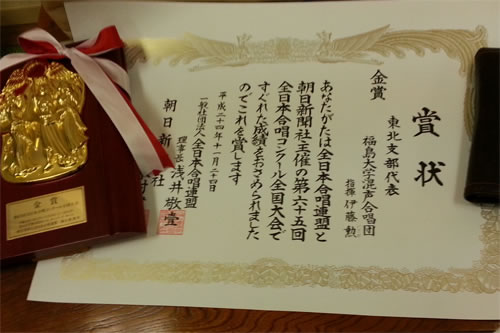 賞状
金賞
東北支部代表
福島大学混声合唱団
指揮 伊藤勲
あなたがたは全日本合唱連盟と
朝日新聞社主催の第六十五回
全日本合唱コンクール全国大会で
すぐれた成績をおさめられました
のでこれを賞します
平成二十四年十一月二十四日
一般社団法人 全日本合唱連盟
理事長 浅井敬壹
朝日新
社
金賞